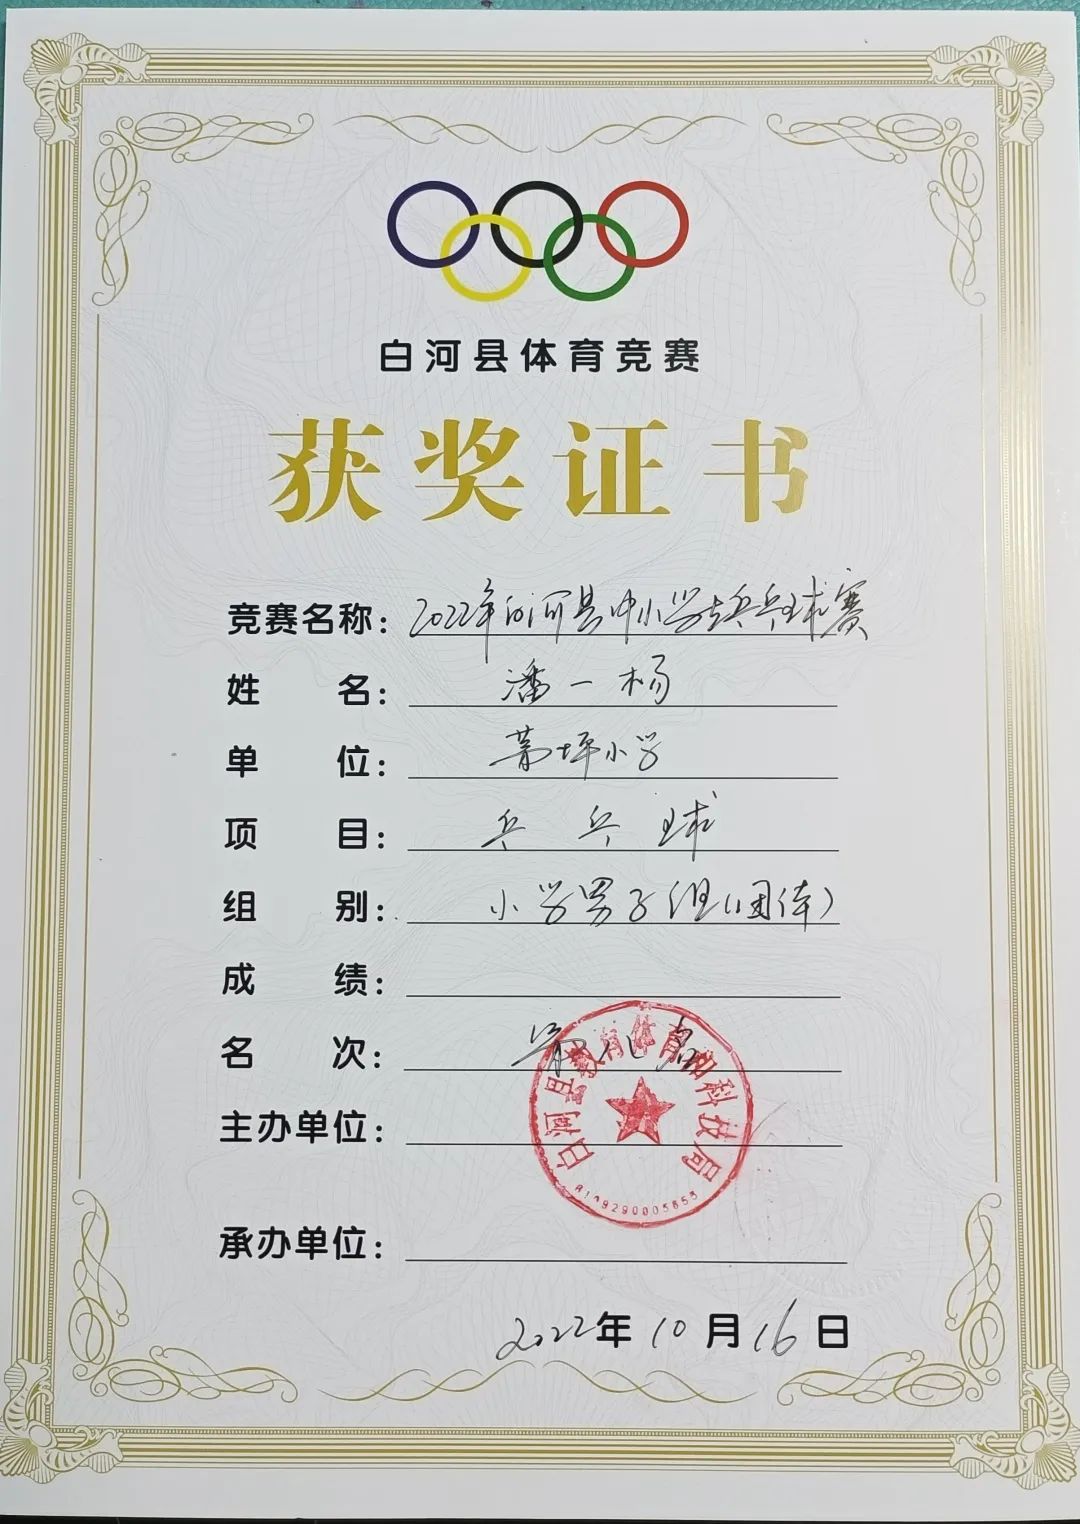 白河县体育竞赛
获奖证书
竞赛名称：2022年白河县中小学生乒乓球赛
姓名：潘一杨
单位：茅坪小学
项目：乒乓球
组别：小学男子组（团体）
成绩：
名次：第八名
主办单位：
白河县教育体育和科技局
承办单位：
2022年10月16日